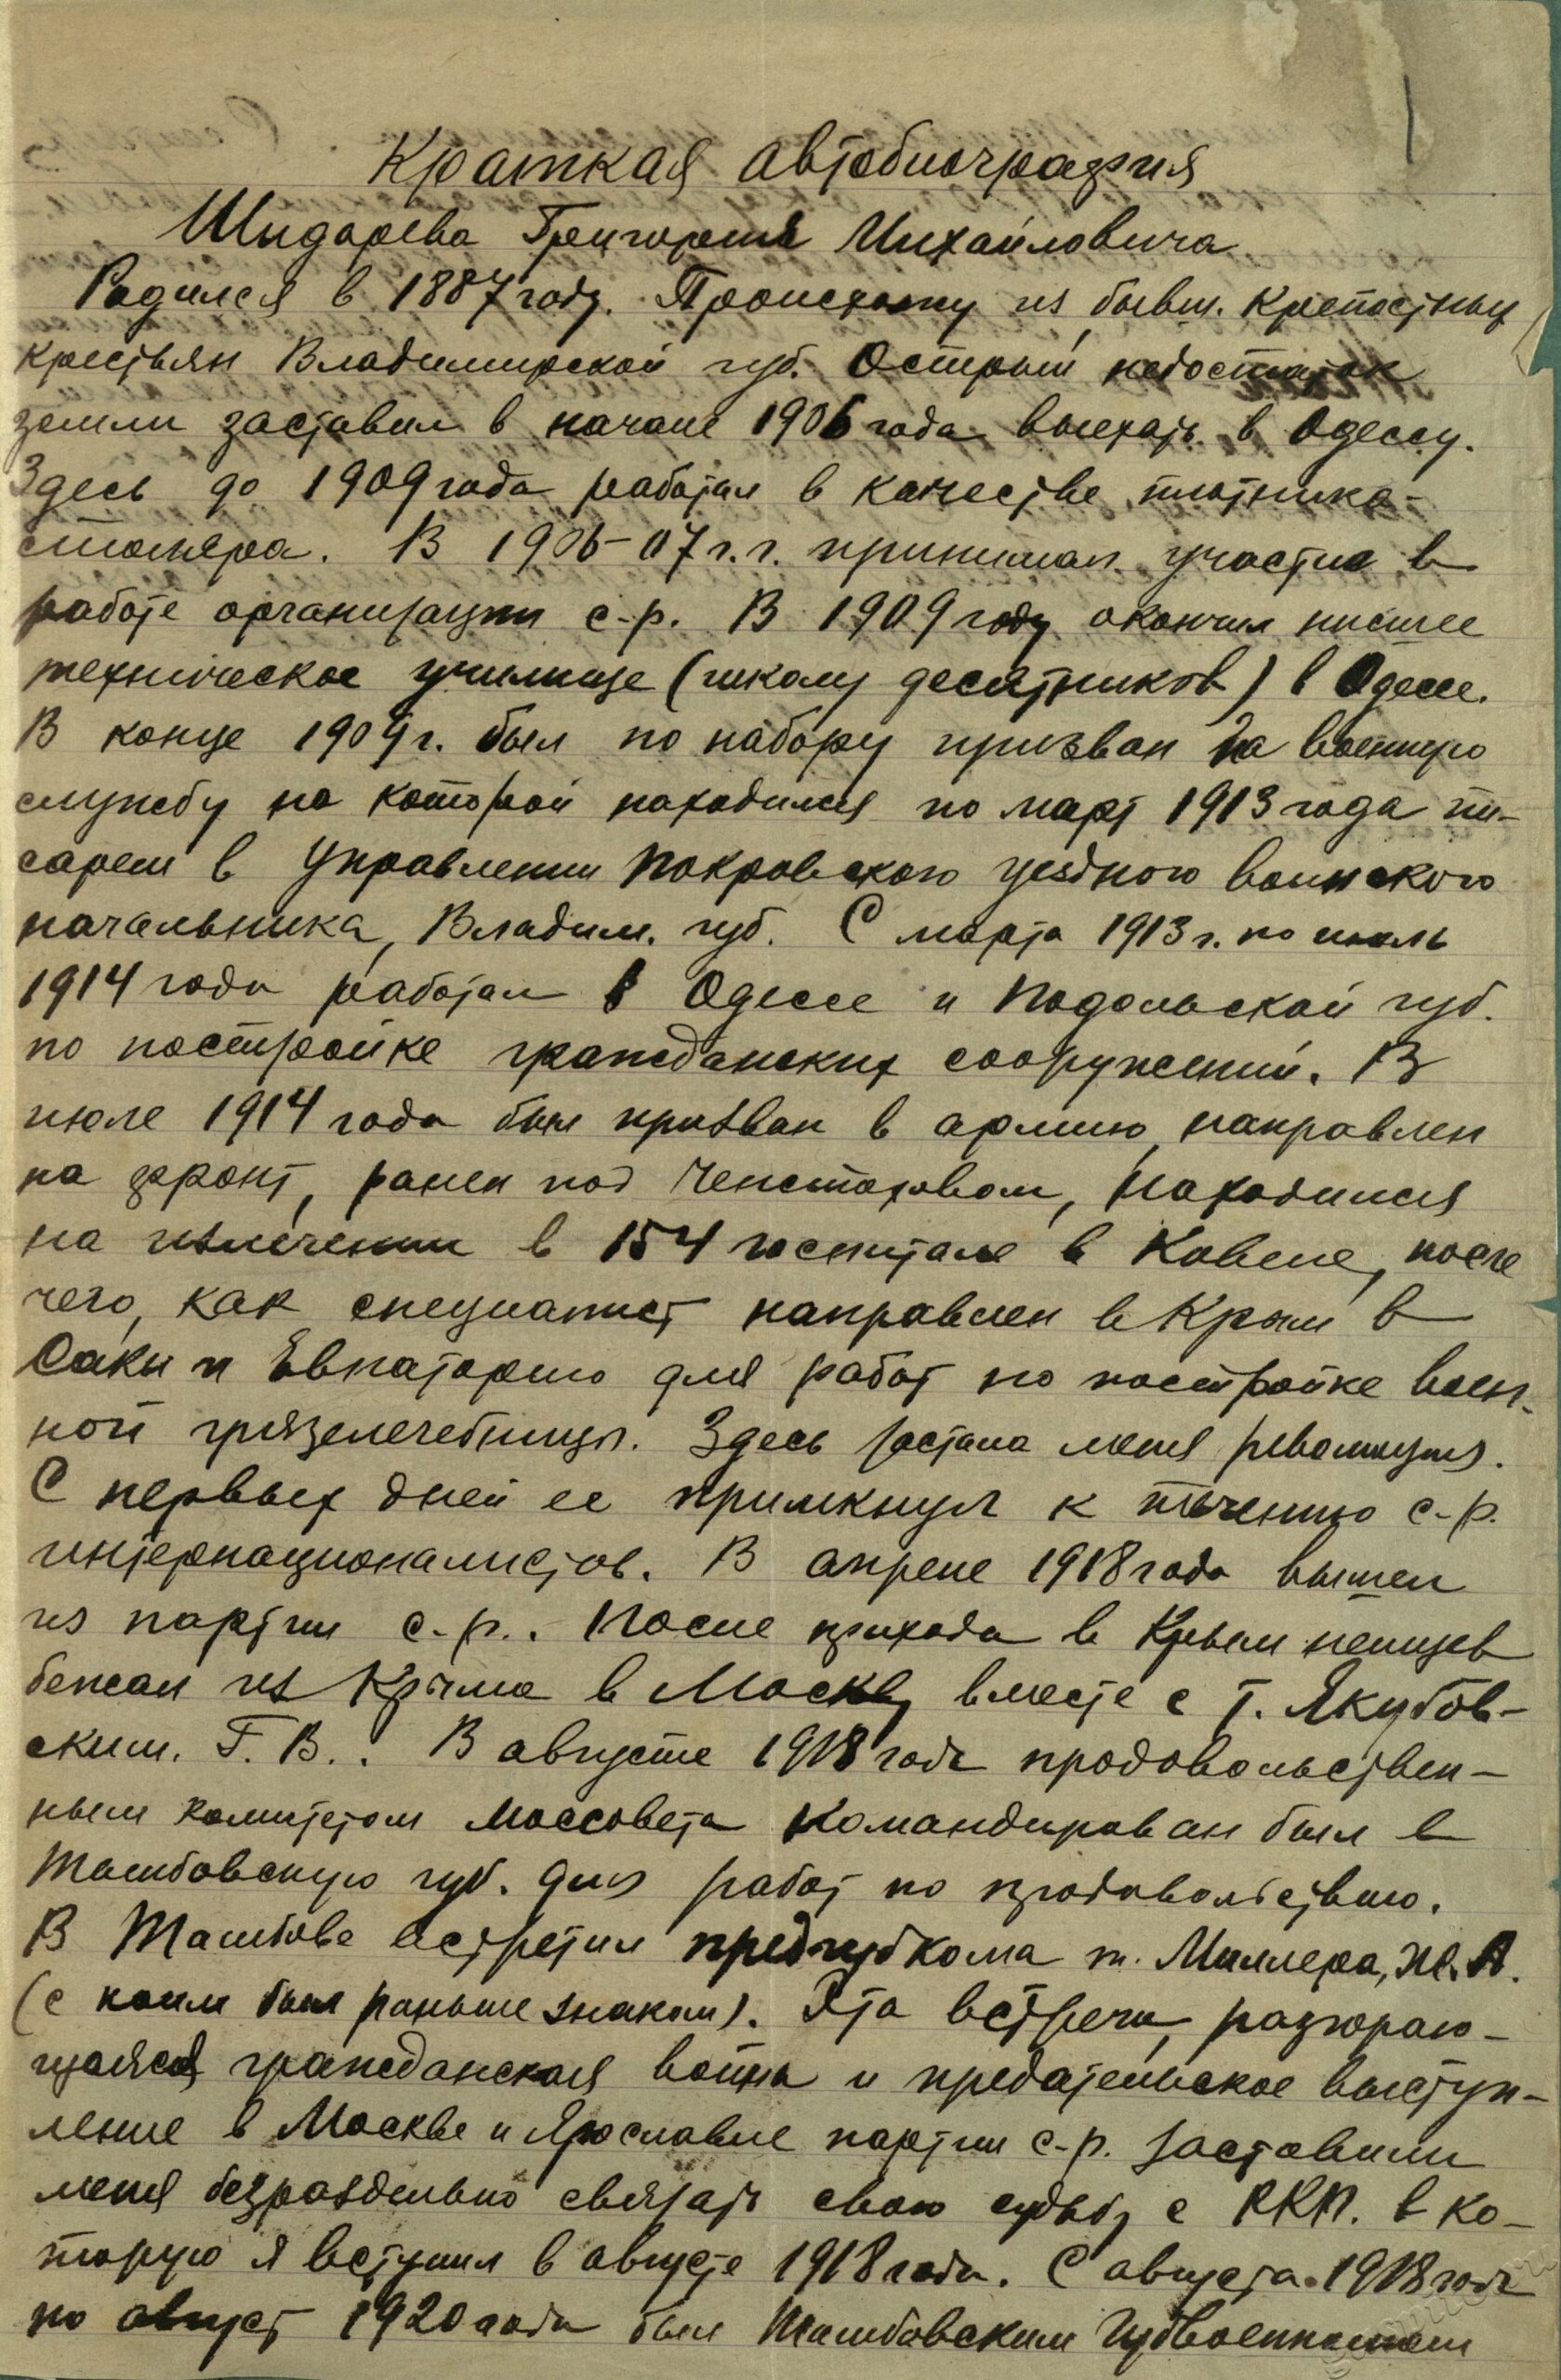 Краткая автобиография
Шидарева Григория Михайловича
Родился в 1887 году. Происхожу из бывш. крепостных
крестьян Владимирской губ. Острый недостаток
земли заставил в начале 1906 года выехать в Одессу.
Здесь до 1909 года работал в качестве плотника-
столяра. В 1906-07 г.г. принимал участие в
работе организации с-р. В 1909 году окончил низшее
техническое училище (школу десятников) в Одессе.
В конце 1909 г. был по набору призван на военную
службу на которой находился по март 1913 года пи-
сарем в Управлении Покровского уездного воинского
начальника, Владим. губ. С марта 1913 г. по июль
1914 года работал в Одессе и Подольской губ.
по постройке гражданских сооружений. В
июле 1914 года был призван в армию, направлен
на фронт, ранен под Ченстоховом, находился
на излечении в 154 госпитале в Ковеле, после
чего, как специалист направлен в Крым в
Саки и Евпаторию для работ по постройке воен-
ной грязелечебницы. Здесь застала меня революция.
С первых дней ее примкнул к течению с-р.
интернационалистов. В апреле 1918 года вышел
из партии с.-р.. После прихода в Крым немцев
бежал из Крыма в Москву вместе с т. Якубов-
ским. Г. В.. В августе 1918 года продовольствен-
ным комитетом Моссовета командирован был в
Тамбовскую губ. для работ по продовольствию.
В Тамбове встретил предгубкома т. Миллера, Ж. А.
(с коим был раньше знаком). Эта встреча, разгораю-
щаяся гражданская война и предательское выступ-
ление в Москве и Ярославле партии с-р. заставили
меня безраздельно связать свою судьбу с РКП. в ко-
торую я вступил в августе 1918 года. С августа 1918 года
по август 1920 года был Тамбовским Губвоенкомом